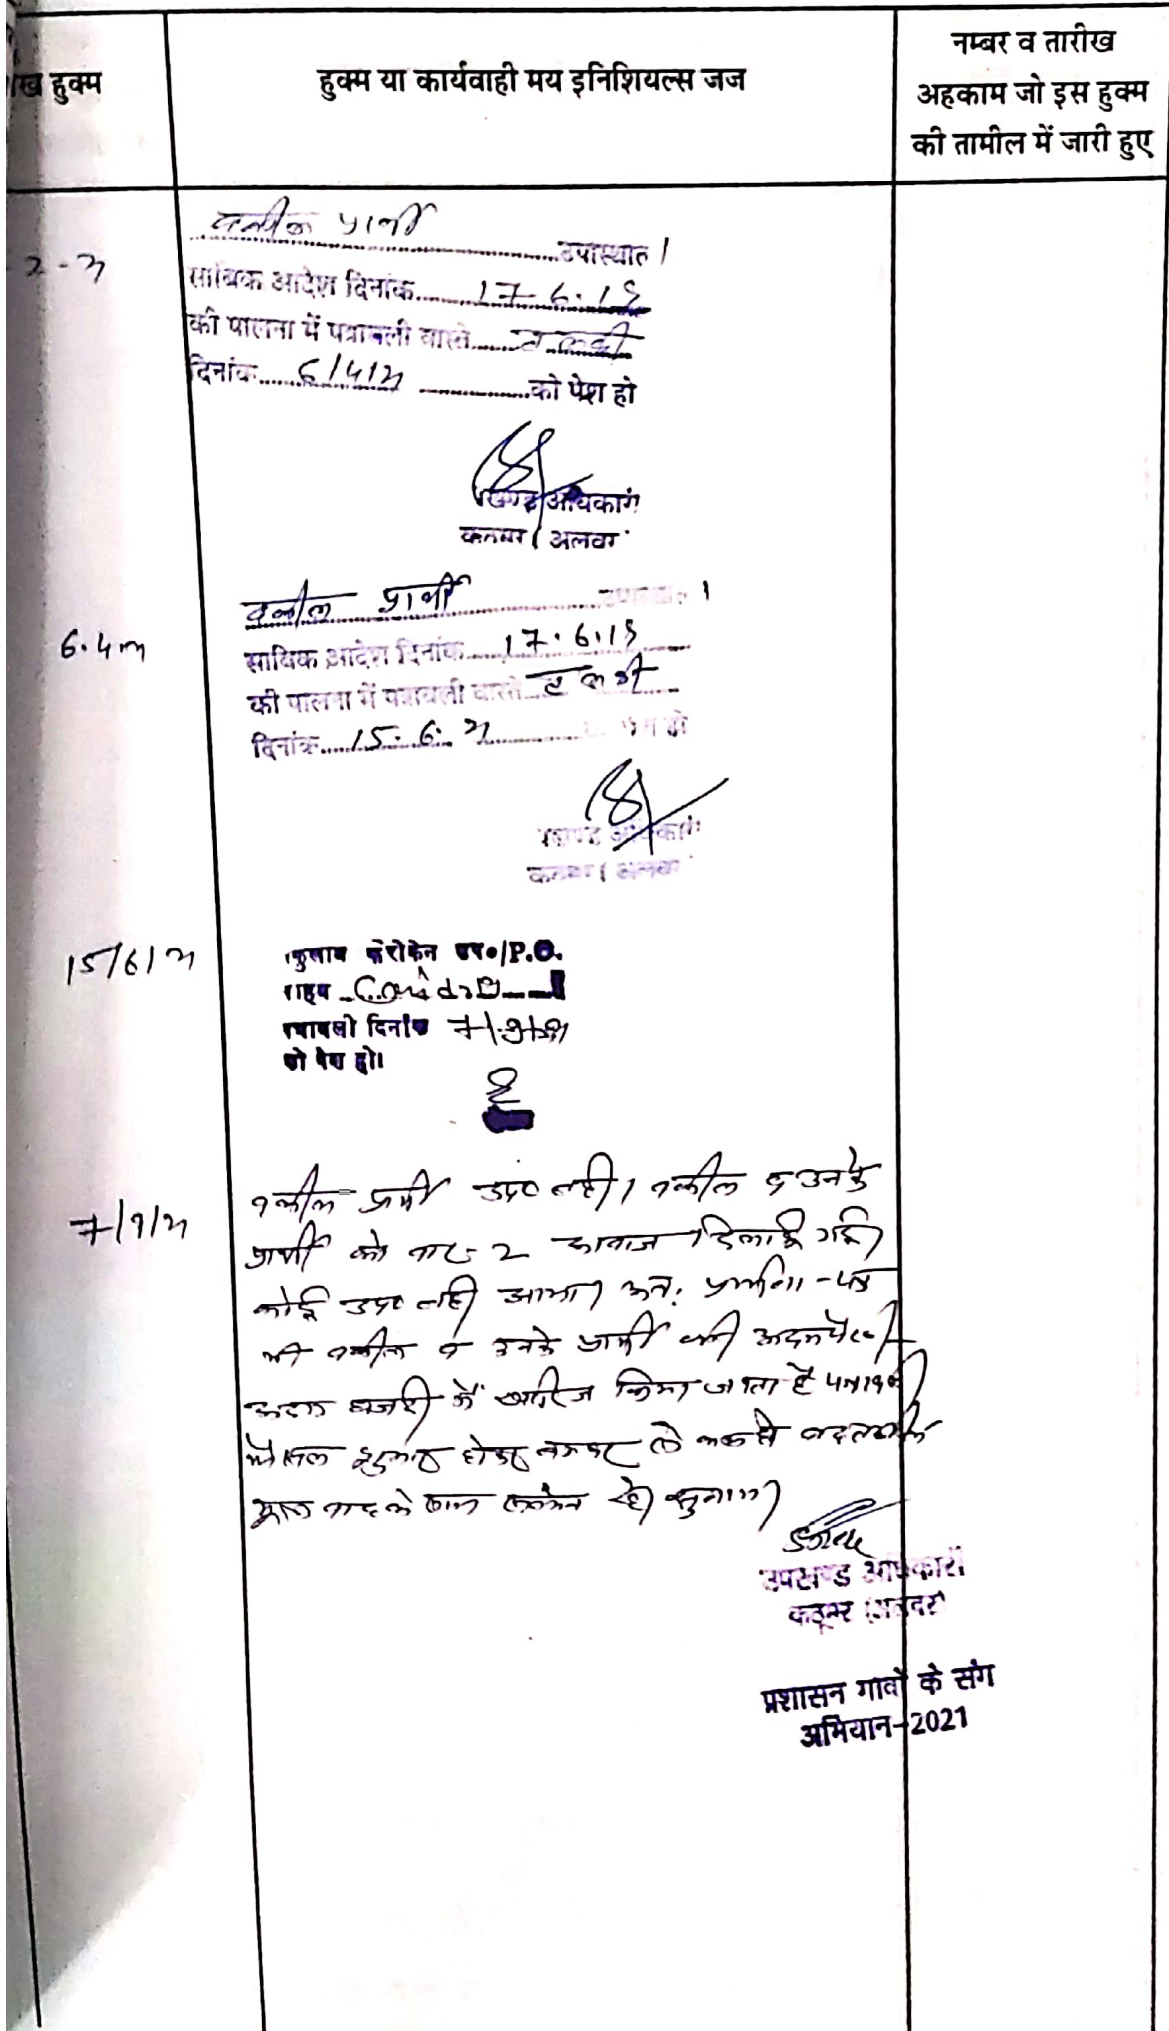 ख हुक्म
हुक्म या कार्यवाही मय इनिशियल्स जज
नम्बर व तारीख
अहकाम जो इस हुक्म
की तामील में जारी हुए
वकील प्रार्थी उपस्थित।
साबिक आदेश दिनांक 17-6-19
की पालना में पत्रावली वास्ते तलबी
दिनांक 6/4/21 को पेश हो
खण्ड अधिकारी
कठूमर (अलवर
6.4.21
वकील प्रार्थी उपस्थित।
साबिक आदेश दिनांक 17.6.19
की पालना में पत्रावली वास्ते तलबी
दिनांक 15.6.21 को पेश हो
खण्ड अधिकारी
कठूमर (अलवर
15/6/21
P.O.
पत्रावली दिनांक
को पेश हो।
7/9/21
वकील प्रार्थी उप० नही। वकील व उनके
प्रार्थी को बार 2 आवाज दिलाई गई।
कोई उप० नही आया। अतः प्रार्थना-पत्र
वकील व उनके प्रार्थी की अदमपैरवी
अदम हाजरी में खारिज किया जाता है पत्रावली
फैसल शुमार होकर नम्बर से कम हो
मूल वाद के साथ रहे। सुनाया।
उपखण्ड अधिकारी
कठूमर (अलवर)
प्रशासन गावों के संग
अभियान-2021